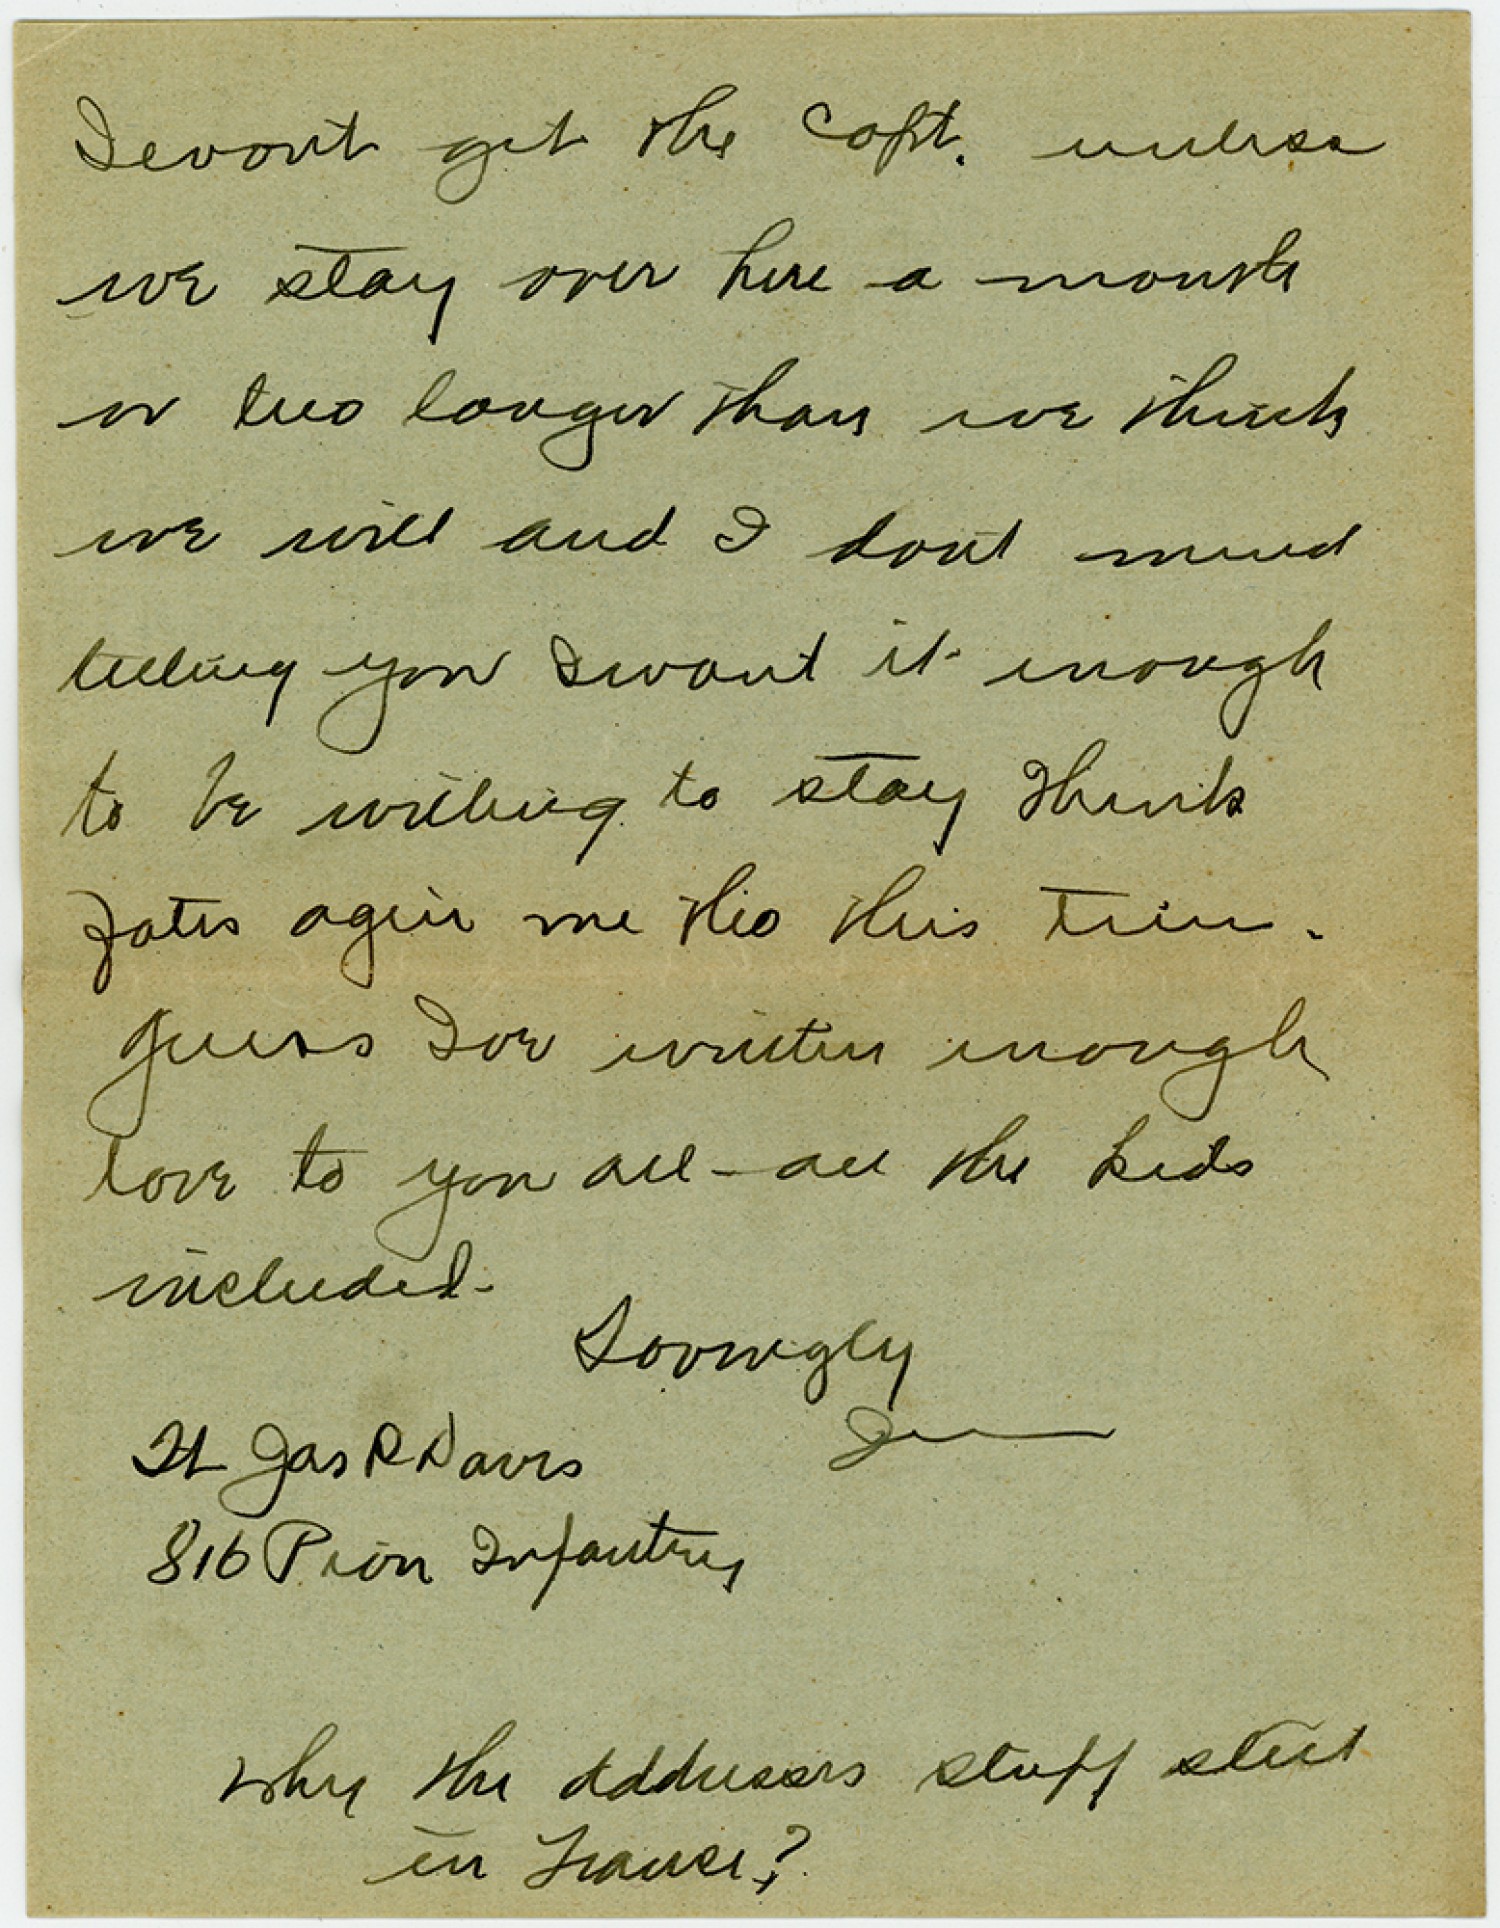 I wont get the Capt. unless
we stay over here a month
or two longer than we think
we will and I dont mind
telling you I want it enough
to be willing to stay Think
fates agin me tho this time.
Guess Ive written enough
love to you all - all the kids
included.
Lovingly
Jim
Lt Jas R Davis
816 Pion Infantry
Why the addresses stuff still
in France?